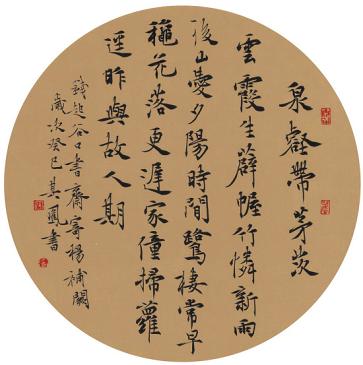 泉壑帶茅茨
雲霞生薜帷竹憐新雨
後山愛夕陽時閒鷺棲常早
穐花落更遲家僮掃蘿
逕昨與故人期
錢起谷口書齋寄楊補闕
歲次癸巳其鳳書